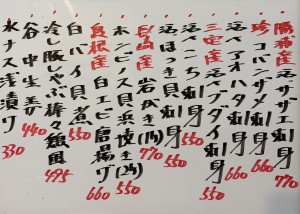 勝浦産
活サザエ刺身 770
珍 コバンザメ刺身 660
活ベアオハタ刺身 660
三宅産
活ブダイ刺身 550
活こち刺身 550
活ほっき貝刺身 550
長崎産
岩がき(1ヶ) 770
ホンビノス貝浜焼き(2ヶ) 550
白エビ唐揚げ 660
島根産
白バイ貝煮 550
冷しゃぶ棒々鶏風 495
谷中生姜 440
水ナス浅漬け 330